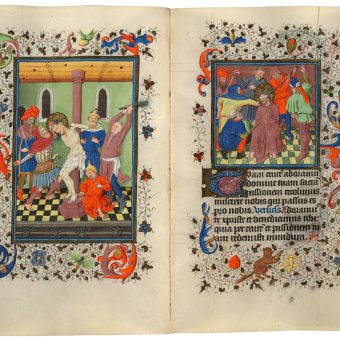 uam crucē adoramꝰ
domine tuam sacrā
passionem recolimꝰ
miserere nobis qui passus es
pro nobis. Versꝰ. Adoramꝰ
te xpriste et benedicimus tibi
quia per crucē et passionem tu
am redemisti mundum.